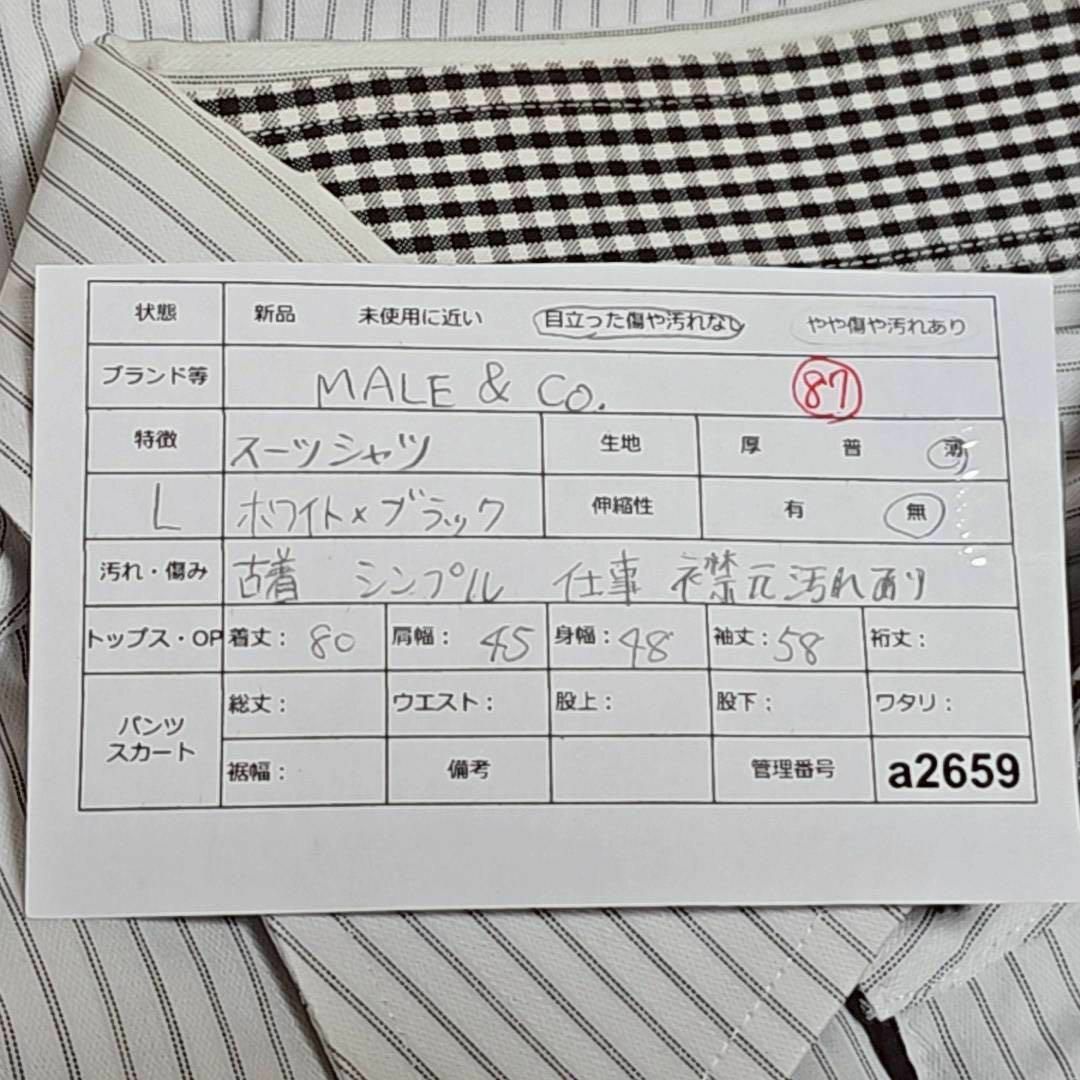 状態 新品 未使用に近い 目立った傷や汚れなし やや傷や汚れあり
ブランド等 MALE & CO. 87
特徴 スーツシャツ 生地 厚 普 薄
L ホワイト×ブラック 伸縮性 有 無
汚れ・傷み 古着 シンプル 仕事 襟元汚れあり
トップス・OP 着丈: 80 肩幅: 45 身幅: 48 袖丈: 58 裄丈:
パンツ スカート 総丈: ウエスト: 股上: 股下: ワタリ:
裾幅: 備考 管理番号 a2659